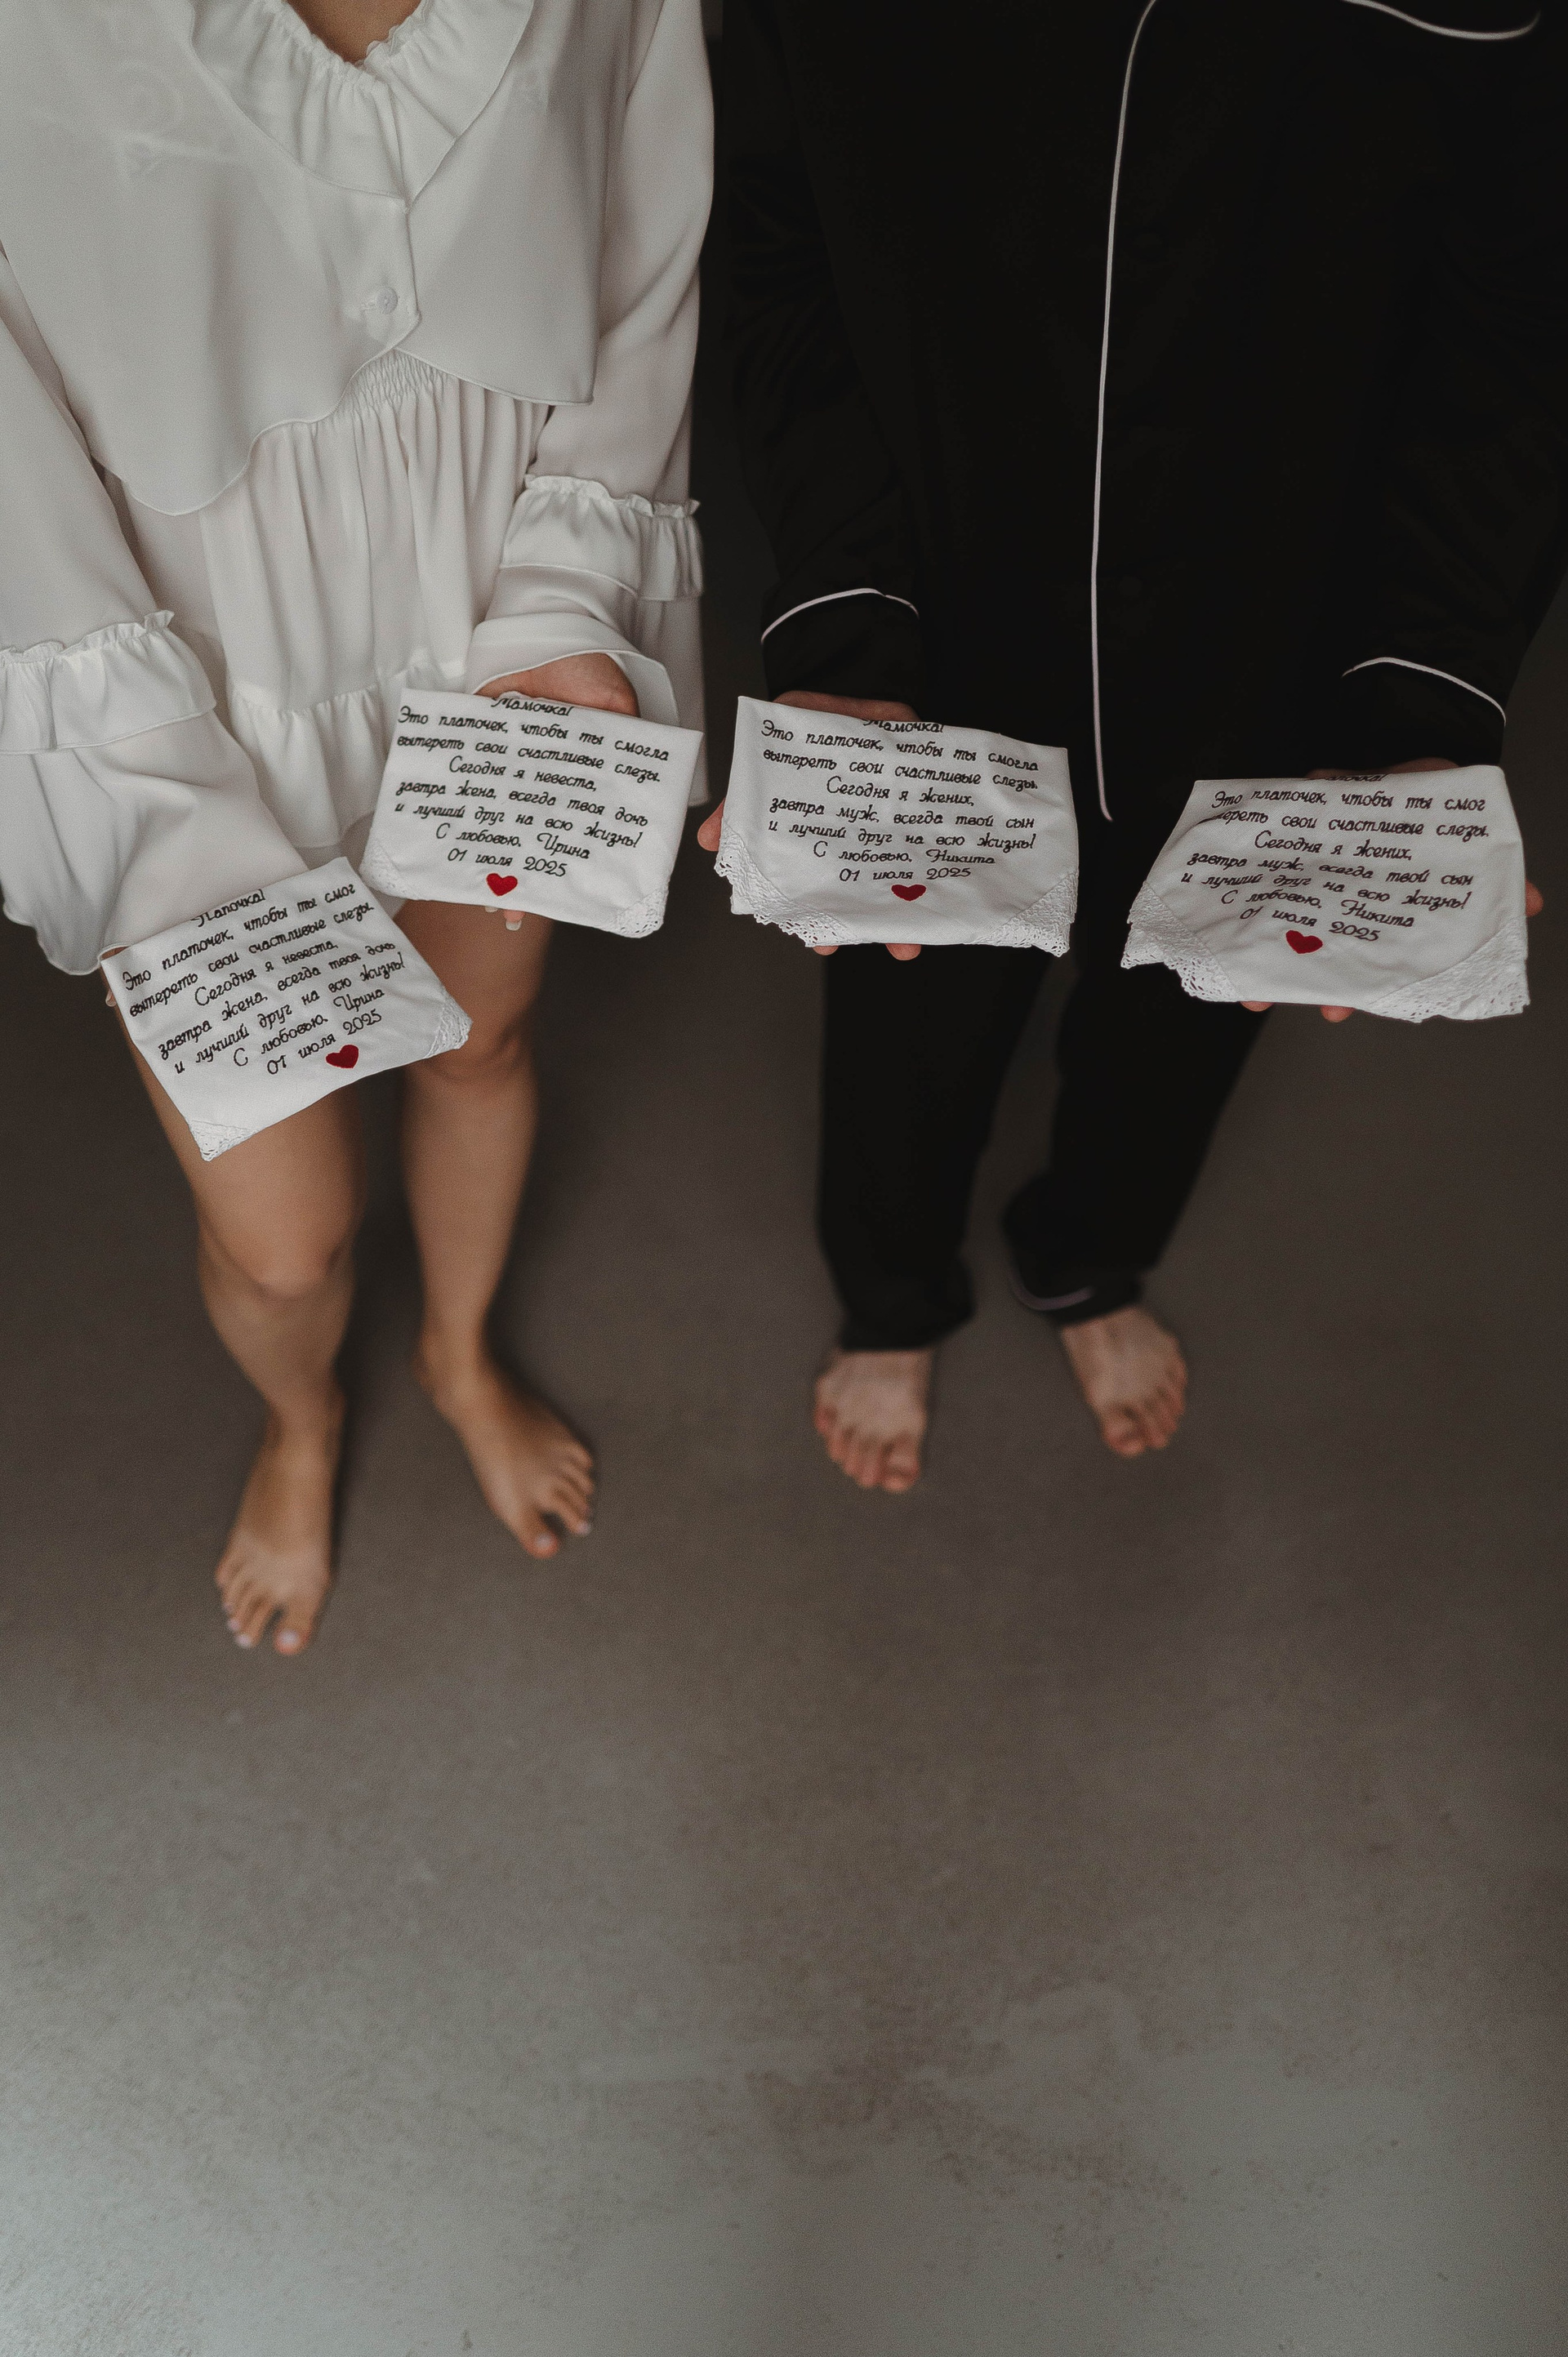 Папочка!
Это платочек, чтобы ты смог
вытереть свои счастливые слезы.
Сегодня я невеста,
завтра жена, всегда твоя дочь
и лучший друг на всю жизнь!
С любовью, Ирина
01 июля 2025
Мамочка!
Это платочек, чтобы ты смогла
вытереть свои счастливые слезы.
Сегодня я невеста,
завтра жена, всегда твоя дочь
и лучший друг на всю жизнь!
С любовью, Ирина
01 июля 2025
Мамочка!
Это платочек, чтобы ты смогла
вытереть свои счастливые слезы.
Сегодня я жених,
завтра муж, всегда твой сын
и лучший друг на всю жизнь!
С любовью, Никита
01 июля 2025
Это платочек, чтобы ты смог
тереть свои счастливые слезы.
Сегодня я жених,
завтра муж, всегда твой сын
и лучший друг на всю жизнь!
С любовью, Никита
01 июля 2025